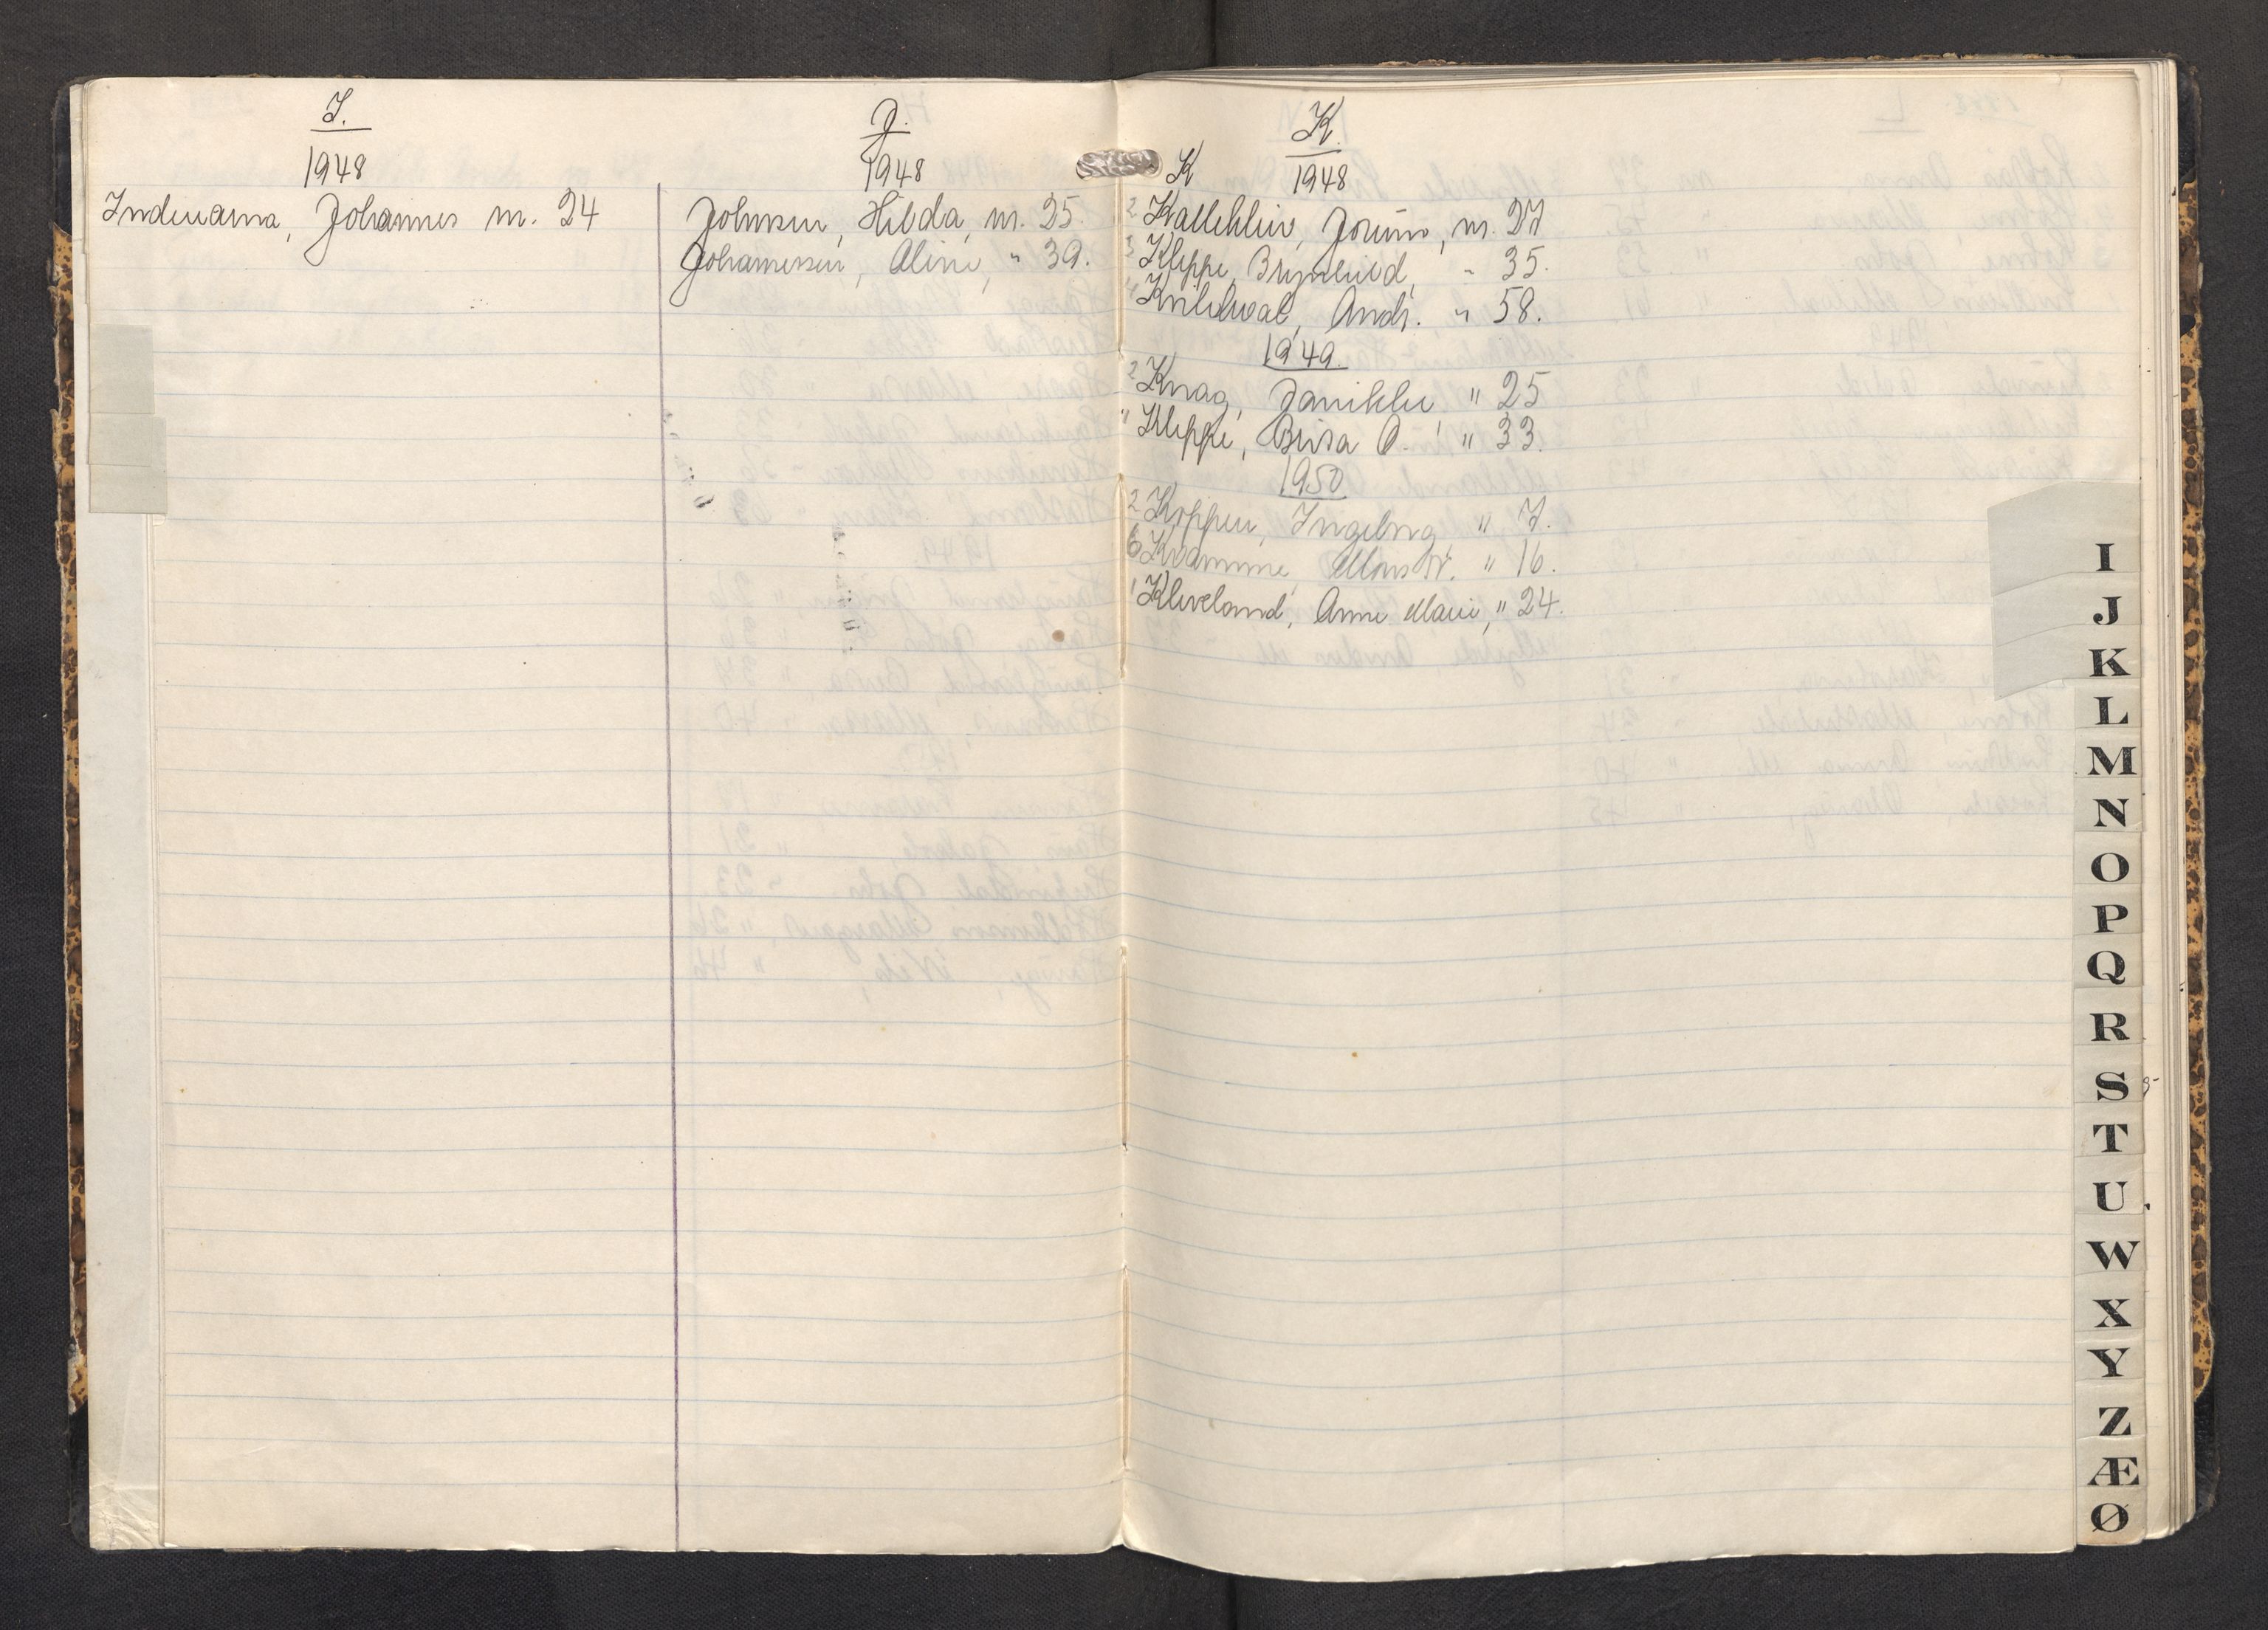 I.
1948
Indrearna, Johannes nr. 24
J.
1948
Johnsen, Hilda, nr. 25.
Johannessen, Oline, " 39.
K.
K
1948
2 Kallekleiv, Jorunn, nr. 27
3 Kleppe, Brynhild, " 35.
4 Andr. " 58.
1949.
2 Knag, Danikke, " 25
" Kleppe, Brita O. " 33.
1950
2 Koppen, Ingeborg, " 7.
6 Kvamme, Mons N. " 16.
1 Kleveland, Anne Marie, " 24.
I
J
K
L
M
N
O
P
Q
R
S
T
U
W
X
Y
Z
Æ
Ø